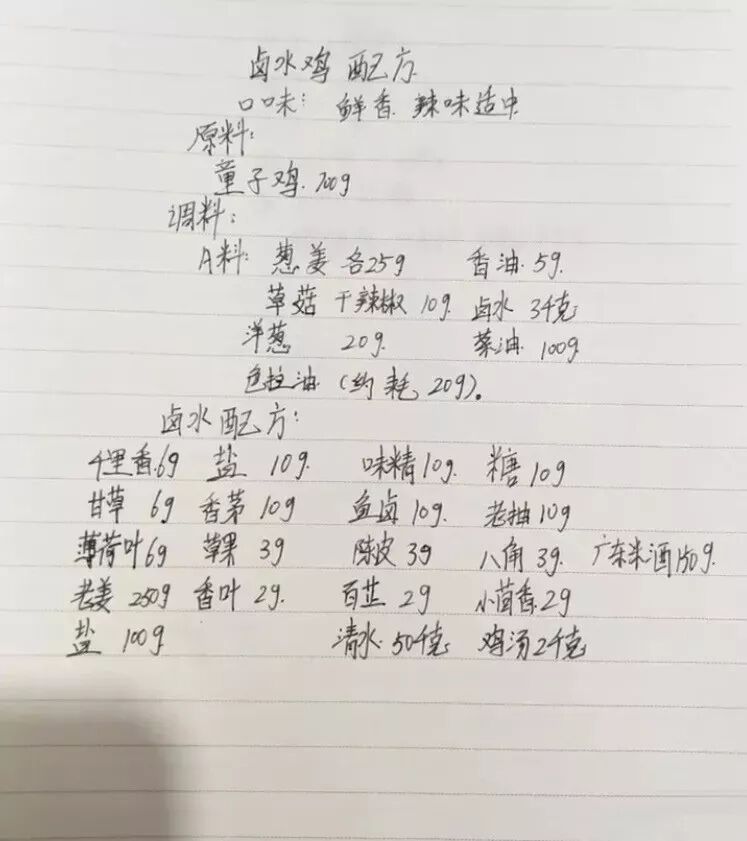 卤水鸡配方
口味: 鲜香 辣味适中
原料:
童子鸡.700g
调料:
A料: 葱姜各25g 香油.5g.
草菇 干辣椒10g. 卤水 3千克
洋葱 20g. 菜油.100g
色拉油 (约耗20g)。
卤水配方:
千里香.6g 盐 10g. 味精10g. 糖10g
甘草 6g 香茅10g 鱼卤10g. 老抽10g
薄荷叶6g 草果3g 陈皮3g 八角3g. 广东米酒150g.
老姜250g 香叶2g. 百芷2g 小茴香.2g
盐 100g. 清水.50千克 鸡汤2千克